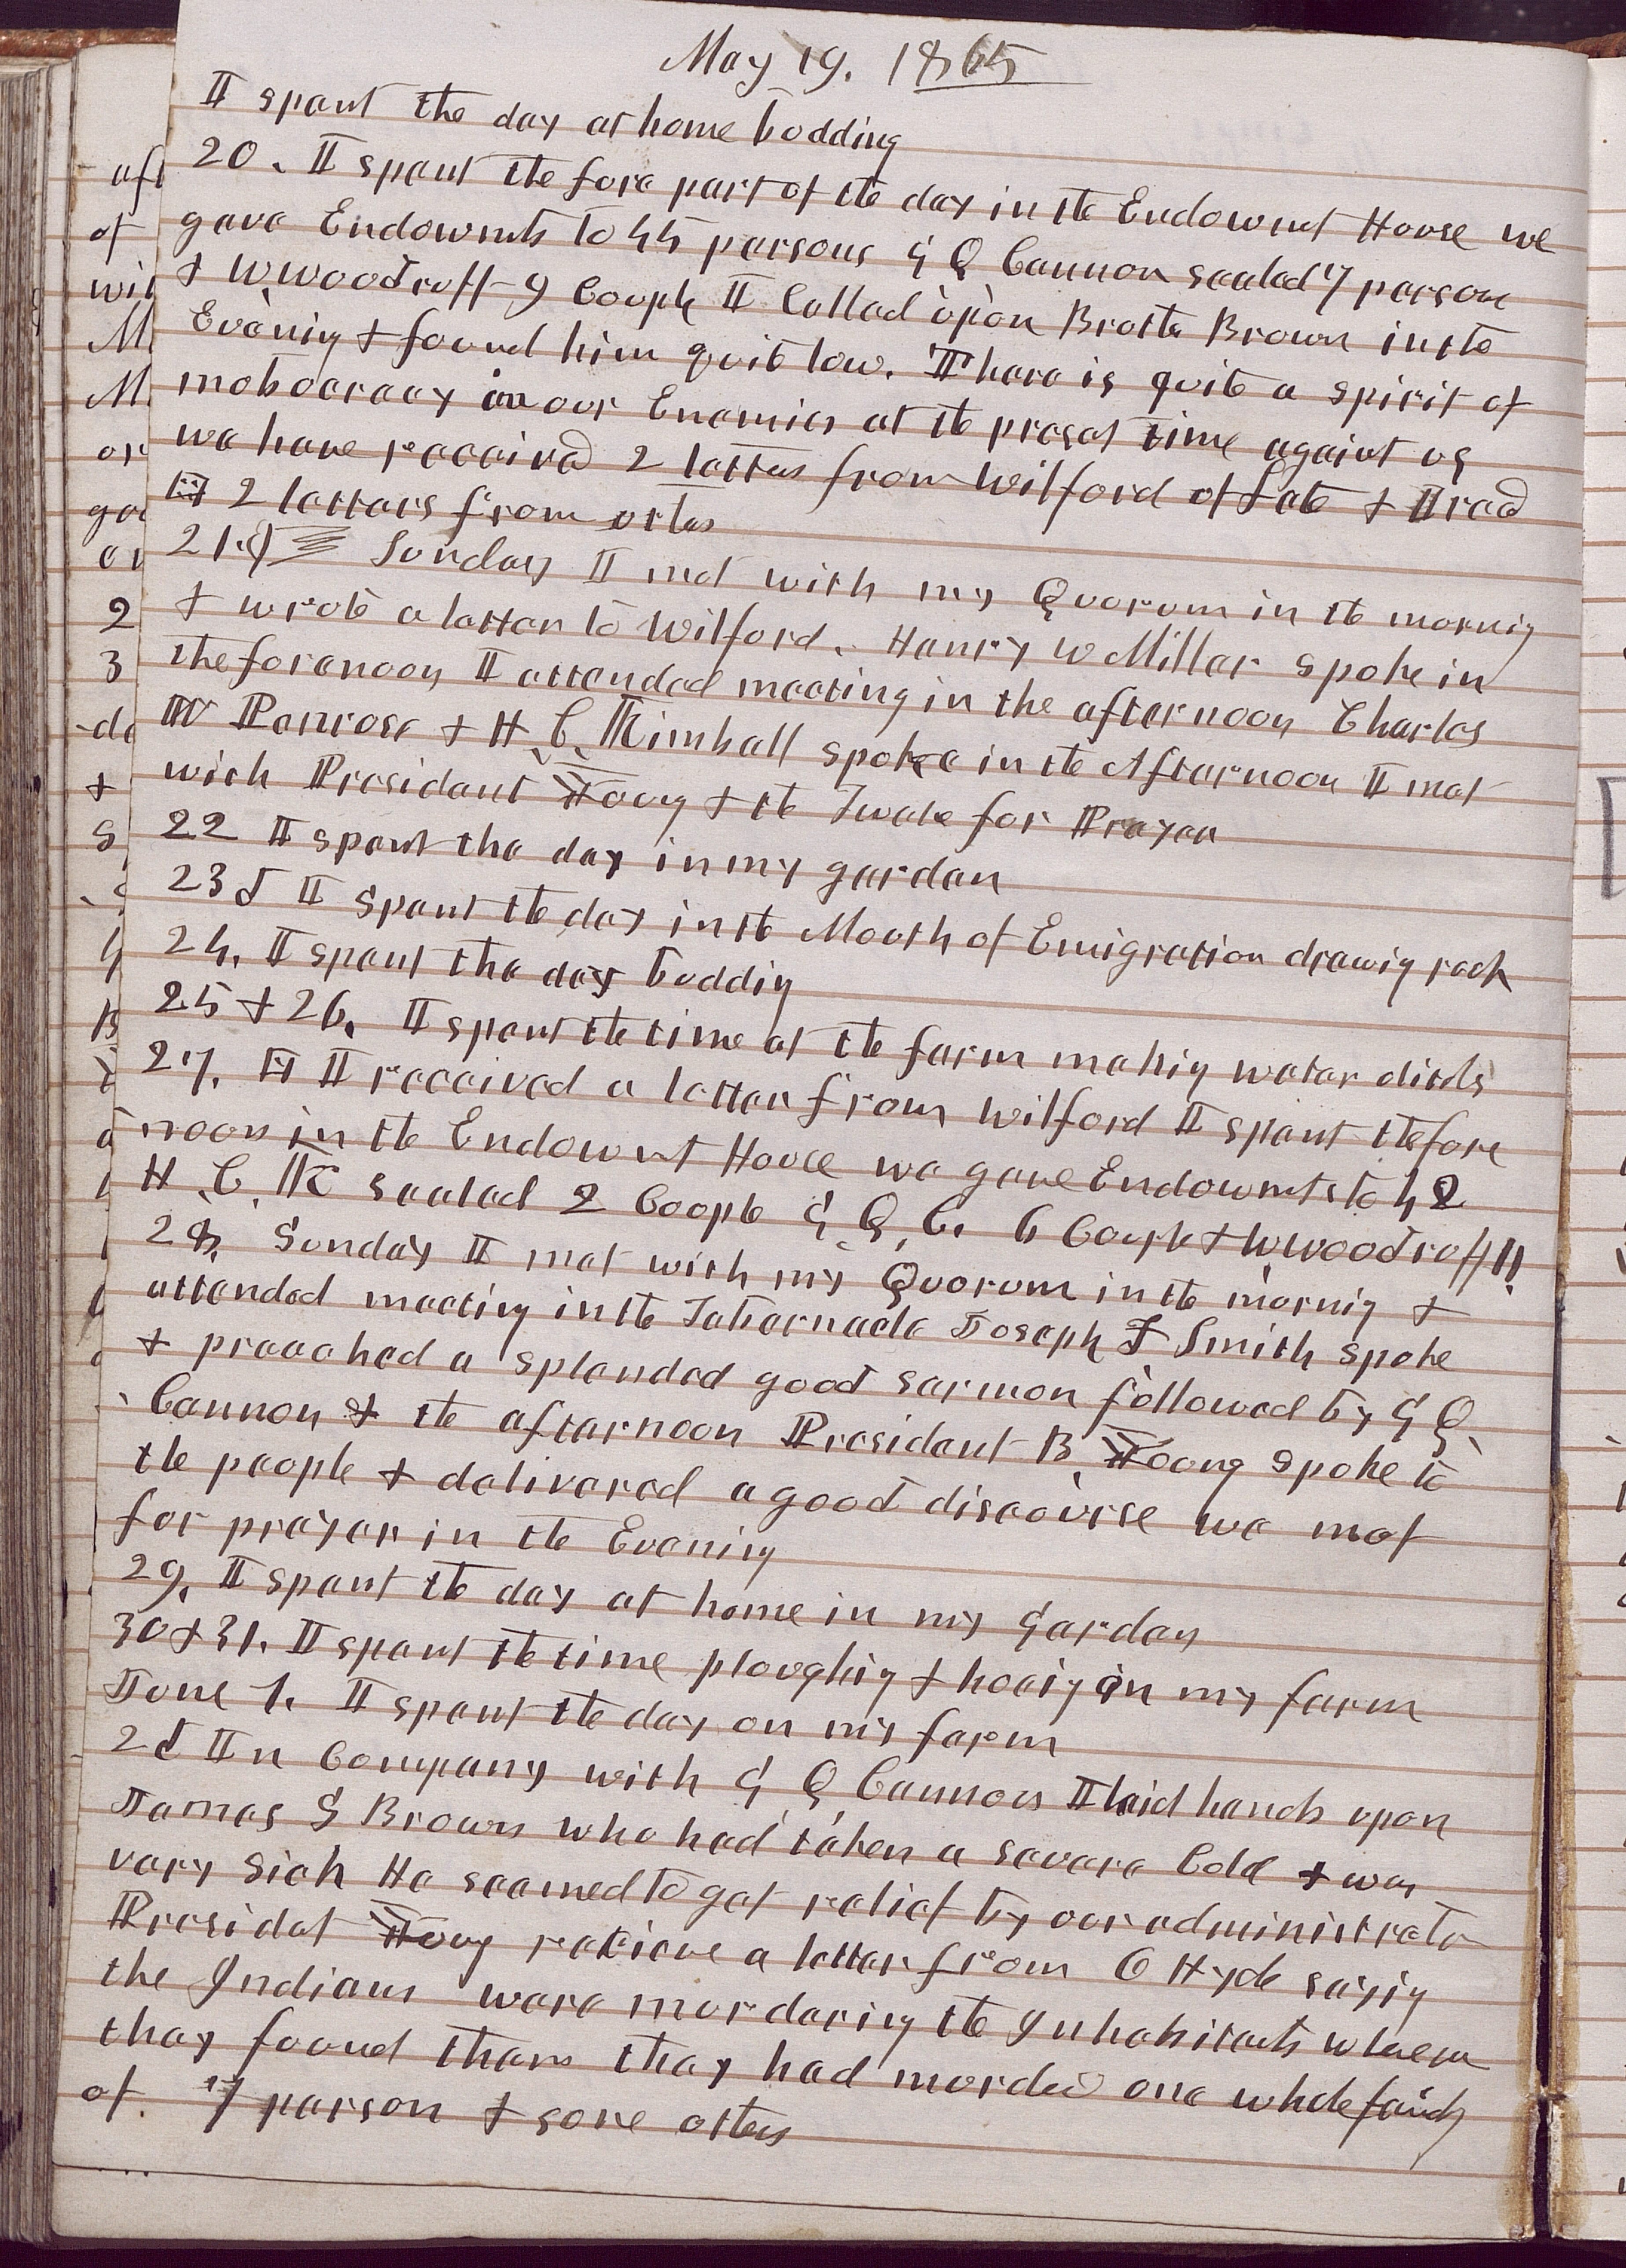 May 19. 1865
I spent the day at home budding
20. I spent the fore part of the day in the Endowmt House we
gave Endowmts to 44 persons G Q Cannon sealed 7 person
& W Woodruff 9 Couple I Called upon Brothr Brown in the
Evening & found him quite low. There is quite a spirit of
mobocracy in our Enemies at the presat time against us
we have received 2 letters from Wilford of late & I read
2 letters from others
21. Sunday I met with my Quorum in the mornig
& wrote a letter to Wilford. Henry W Miller spoke in
the forenoon I attended meeting in the afternoon Charles
W Penrose & H C. Kimball spoke in the Afternoon I met
with President Young & the Twelve for Prayer
22 I spent the day in my garden
23d I spent the day in the Mouth of Emigration drawig rock
24. I spent the day buddig
25 & 26. I spent the time at the farm makig water ditchs
27. I received a letter from Wilford I spent the fore
noon in the Endowmt House we gave Endowmts to 42
H. C. K sealed 2 Couple G. Q. C. 6 Couple & W Woodruff 11.
28. Sunday I met with my Quorum in the mornig &
attended meeting in the Tabernacle Joseph F Smith spoke
& preached a splended good sermon followed by G Q
Cannon & the afternoon President B Young spoke to
the people & delivered a good discourse we met
for prayer in the Evening
29. I spent the day at home in my Garden
30 & 31. I spent the time ploughig & hoeig in my farm
June 1. I spent the day on my farm
2d In Company with G Q Cannon I laid hands upon
James S Brown who had taken a severe Cold & was
very sick He seemed to get relief by our administrato
Presidet Young recieve a letter from O Hyde sayig
the Indians were murdering the Inhabitants wheere
they found them they had murded one whole famly
of 7 person & some others
aft
of
wit
M.
M.
or
2
3
&